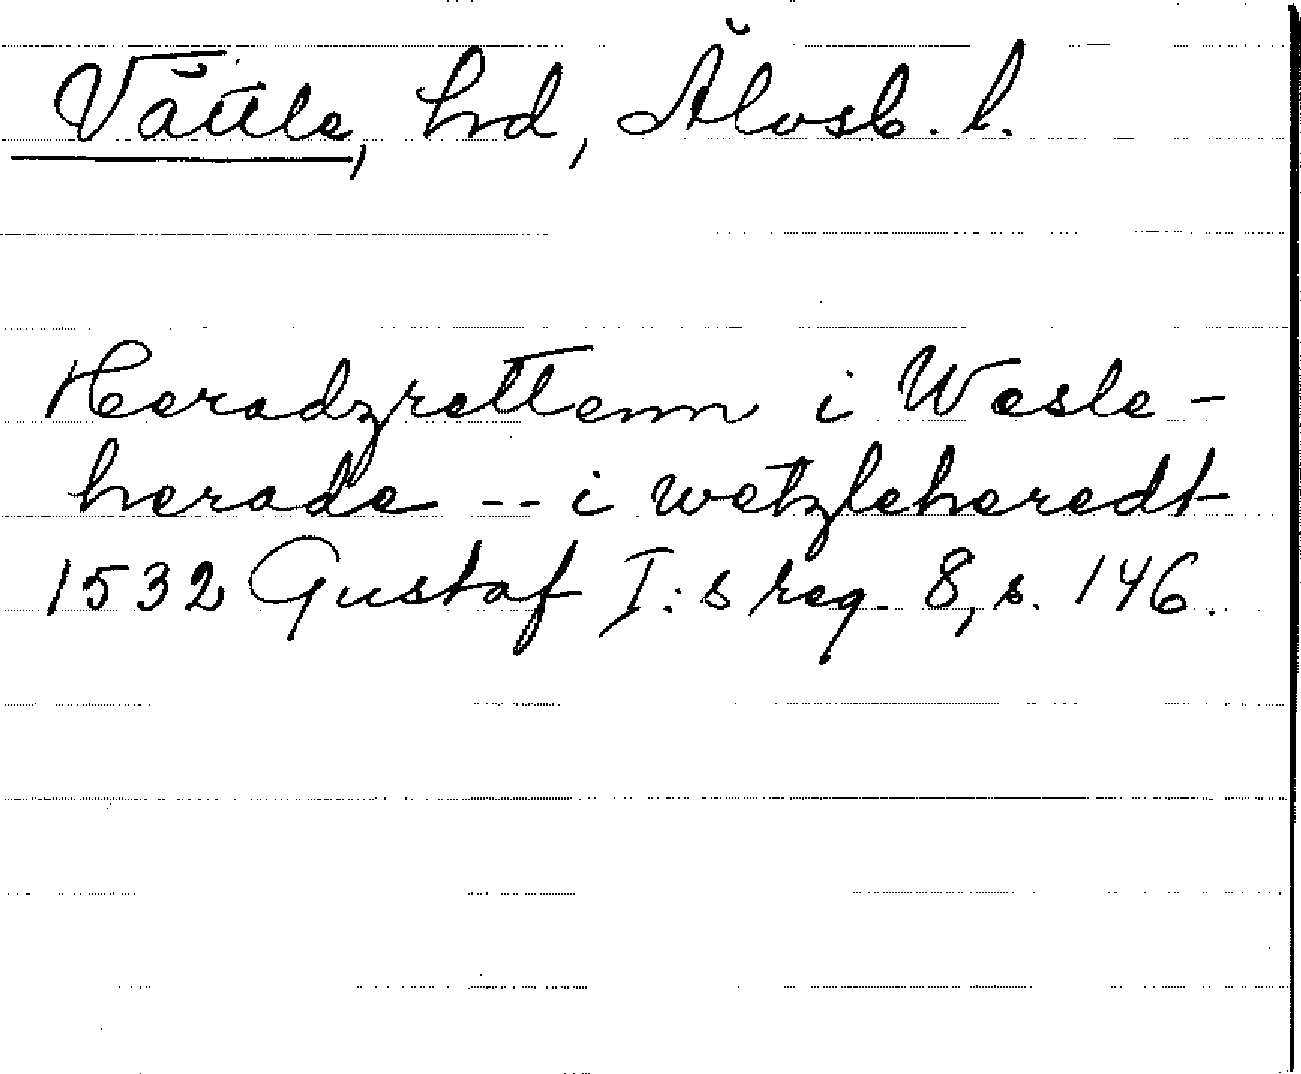 Vättle, hrd, Älvsb. l.
Heradzrettenn i Wesle-
herade -- i wetzleheredt
1532 Gustaf I:s reg. 8, s. 146.